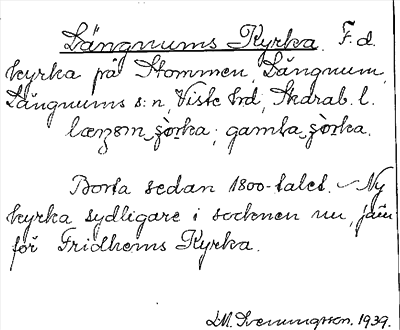 Längnums Kyrka. F.d.
kyrka på Stommen, Längnum,
Längnums s:n, Viste hd, Skarab. l.
gamla
Borta sedan 1800-talet. Ny
kyrka sydligare i socknen nu, jäm
för Fridhems Kyrka.
D.M. Svenningsson. 1939.